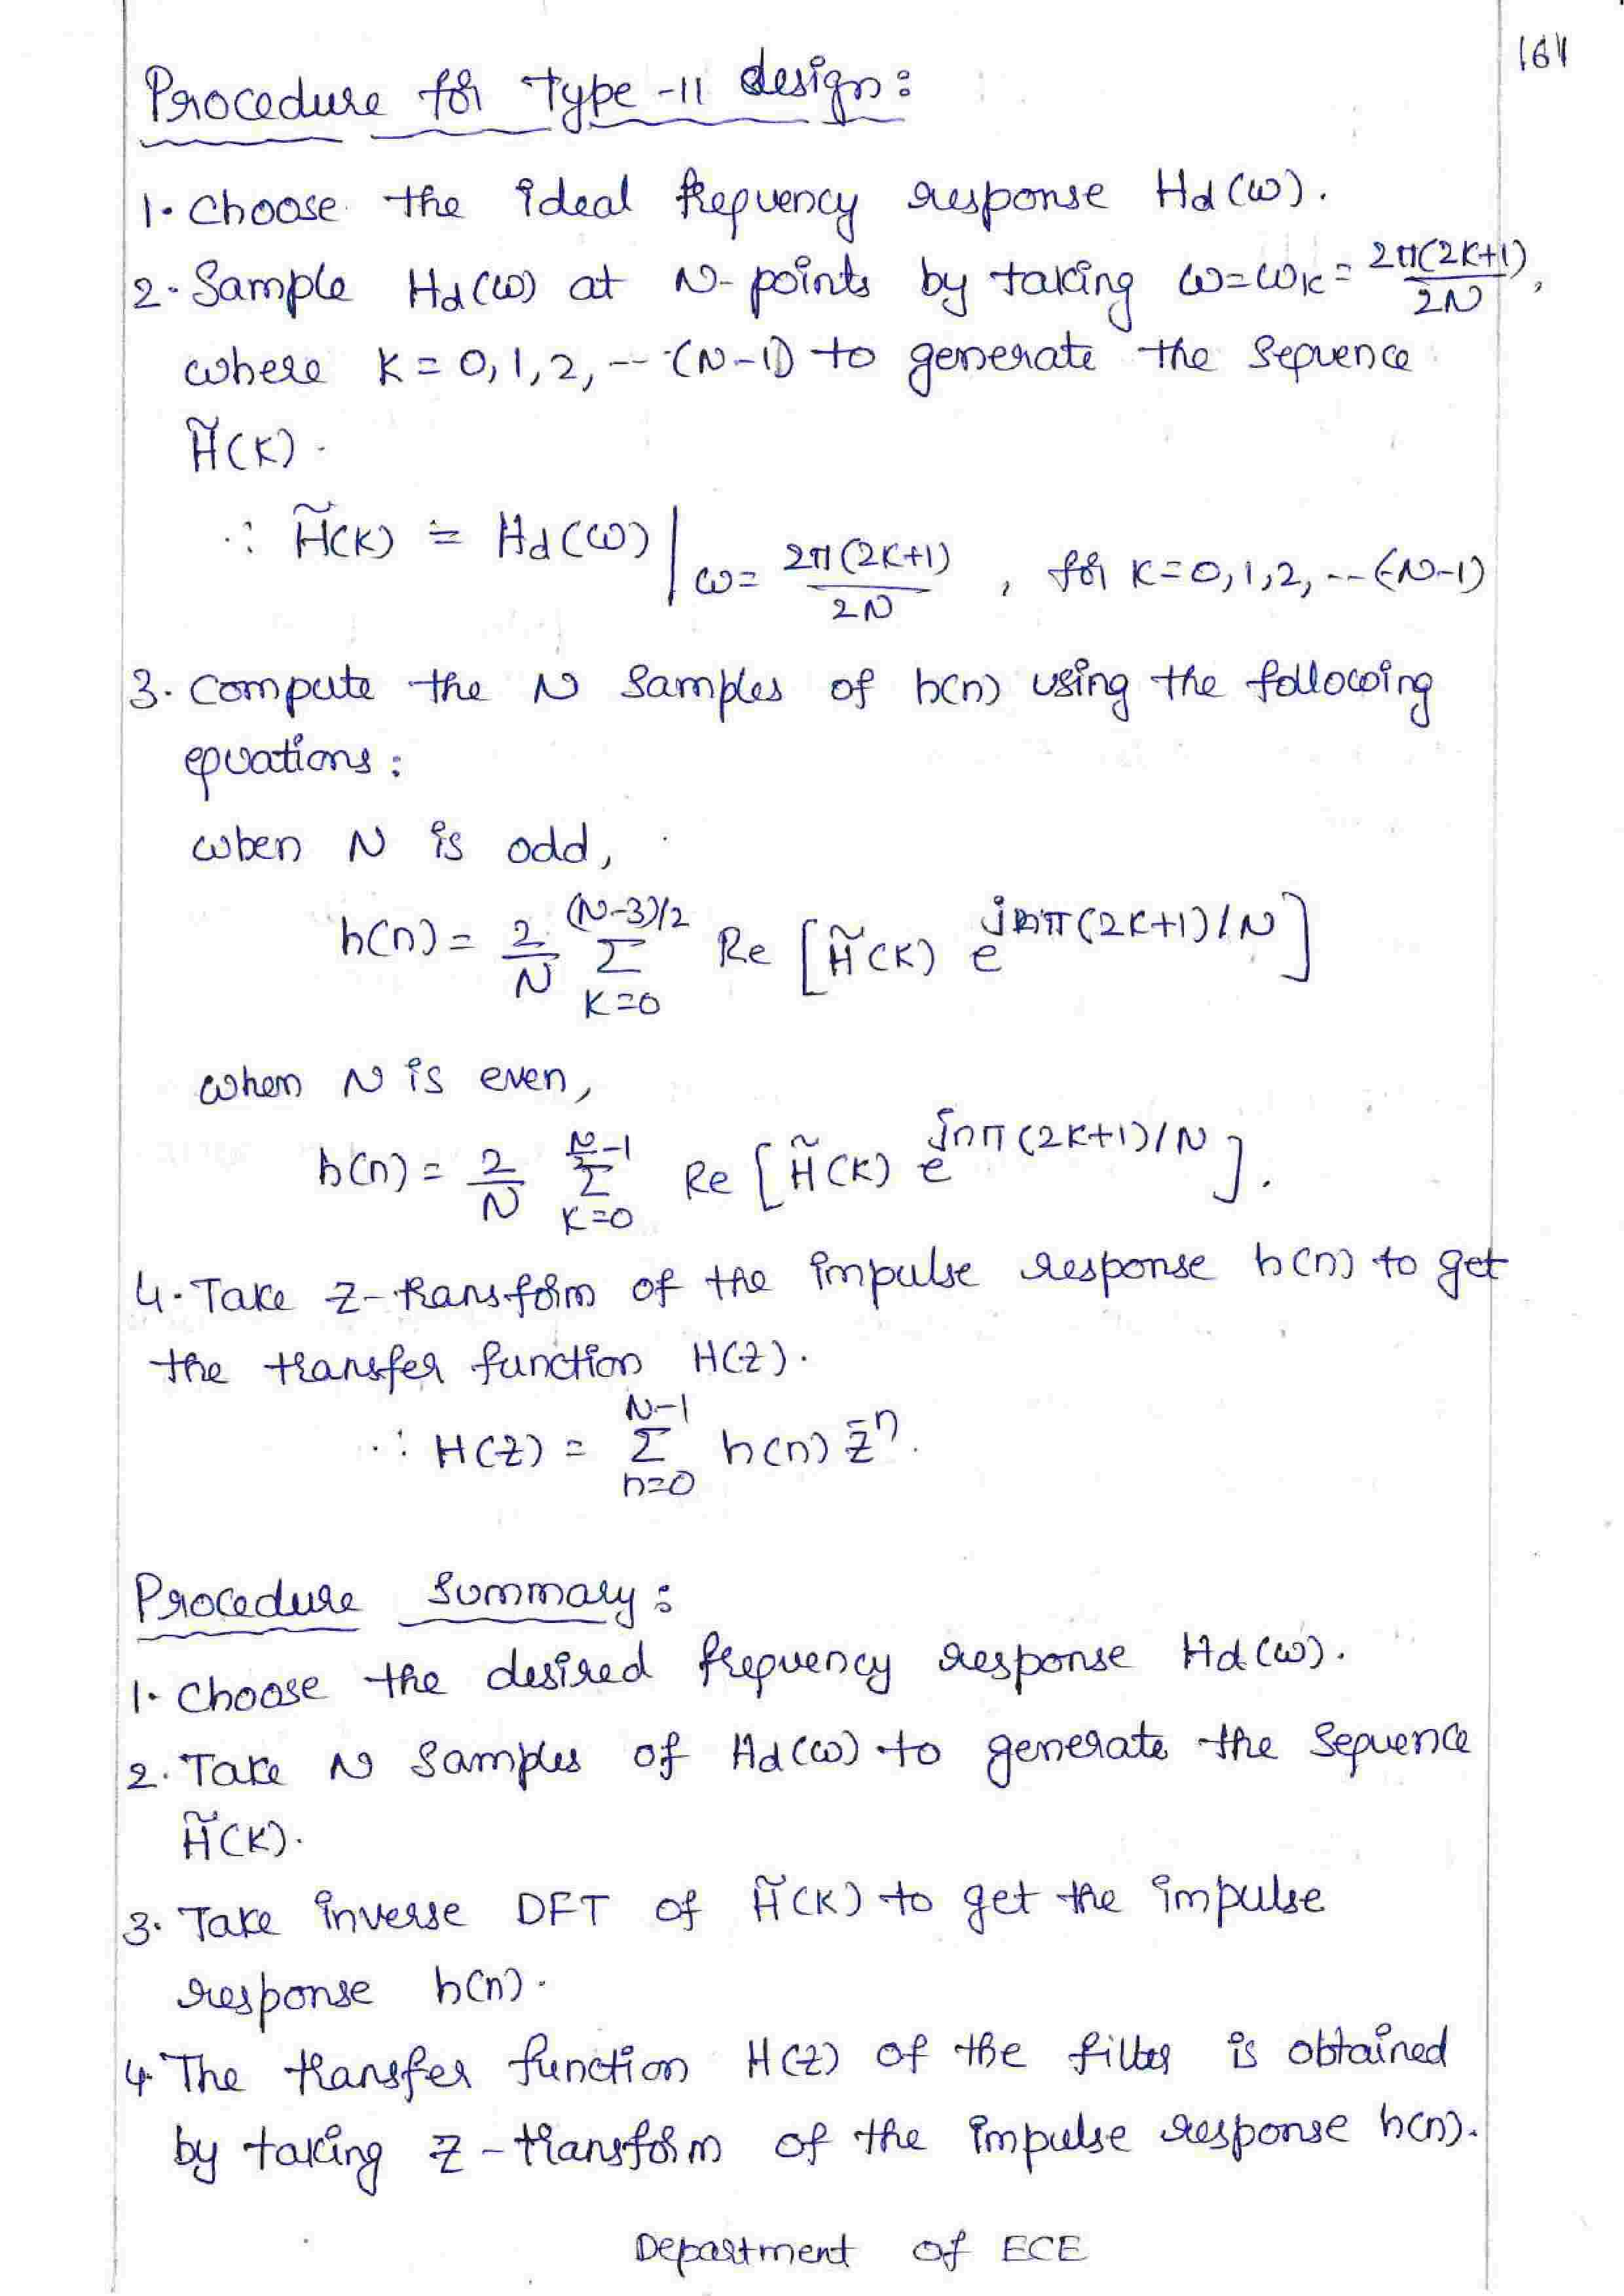 161
Procedure for Type-II design:
1. Choose the ideal frequency response Hd(ω).
2. Sample Hd(ω) at N-points by taking ω=ωk= 2π(2K+1)/2N,
where K = 0,1,2, --- (N-1) to generate the sequence
H̃(K).
∴ H̃(K) = Hd(ω)| ω= 2π(2K+1)/2N , for K=0,1,2, --- (N-1)
3. Compute the N samples of h(n) using the following
equations:
when N is odd,
h(n) = 2/N Σ_{K=0}^{(N-3)/2} Re [H̃(K) e^{jnπ(2K+1)/N}]
when N is even,
h(n) = 2/N Σ_{K=0}^{N/2-1} Re [H̃(K) e^{jnπ(2K+1)/N}].
4. Take Z-transform of the impulse response h(n) to get
the transfer function H(Z).
∴ H(Z) = Σ_{n=0}^{N-1} h(n) Z^{-n}.
Procedure Summary:
1. Choose the desired frequency response Hd(ω).
2. Take N samples of Hd(ω) to generate the sequence
H̃(K).
3. Take inverse DFT of H̃(K) to get the impulse
response h(n).
4. The transfer function H(Z) of the filter is obtained
by taking Z-transform of the impulse response h(n).
Department of ECE